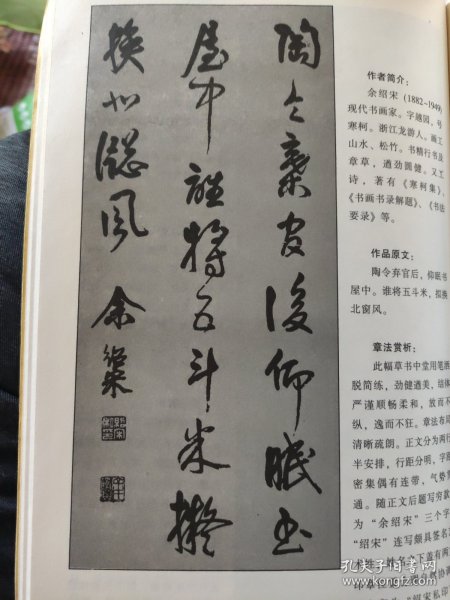 陶令弃官后仰眠书
屋中谁将五斗米拟
换北窗风
余绍宋
作者简介：
余绍宋（1882~1949）
现代书画家。字越园，号
寒柯。浙江龙游人。画工
山水、松竹。书精行书及
章草，遒劲圆健。又工
诗，著有《寒柯集》、
《书画书录解题》、《书法
要录》等。
作品原文：
陶令弃官后，仰眠书
屋中。谁将五斗米，拟换
北窗风。
章法赏析：
此幅草书中堂用笔洒
脱简练，劲健遒美，结体
严谨顺畅柔和，放而不
纵，逸而不狂。章法布局
清晰疏朗。正文分为两行
半安排，行距分明，字距
密集偶有连带，气势贯
通。随正文后题写穷款
为“余绍宋”三个字
“绍宋”连写颇具签名
孔夫子旧书网